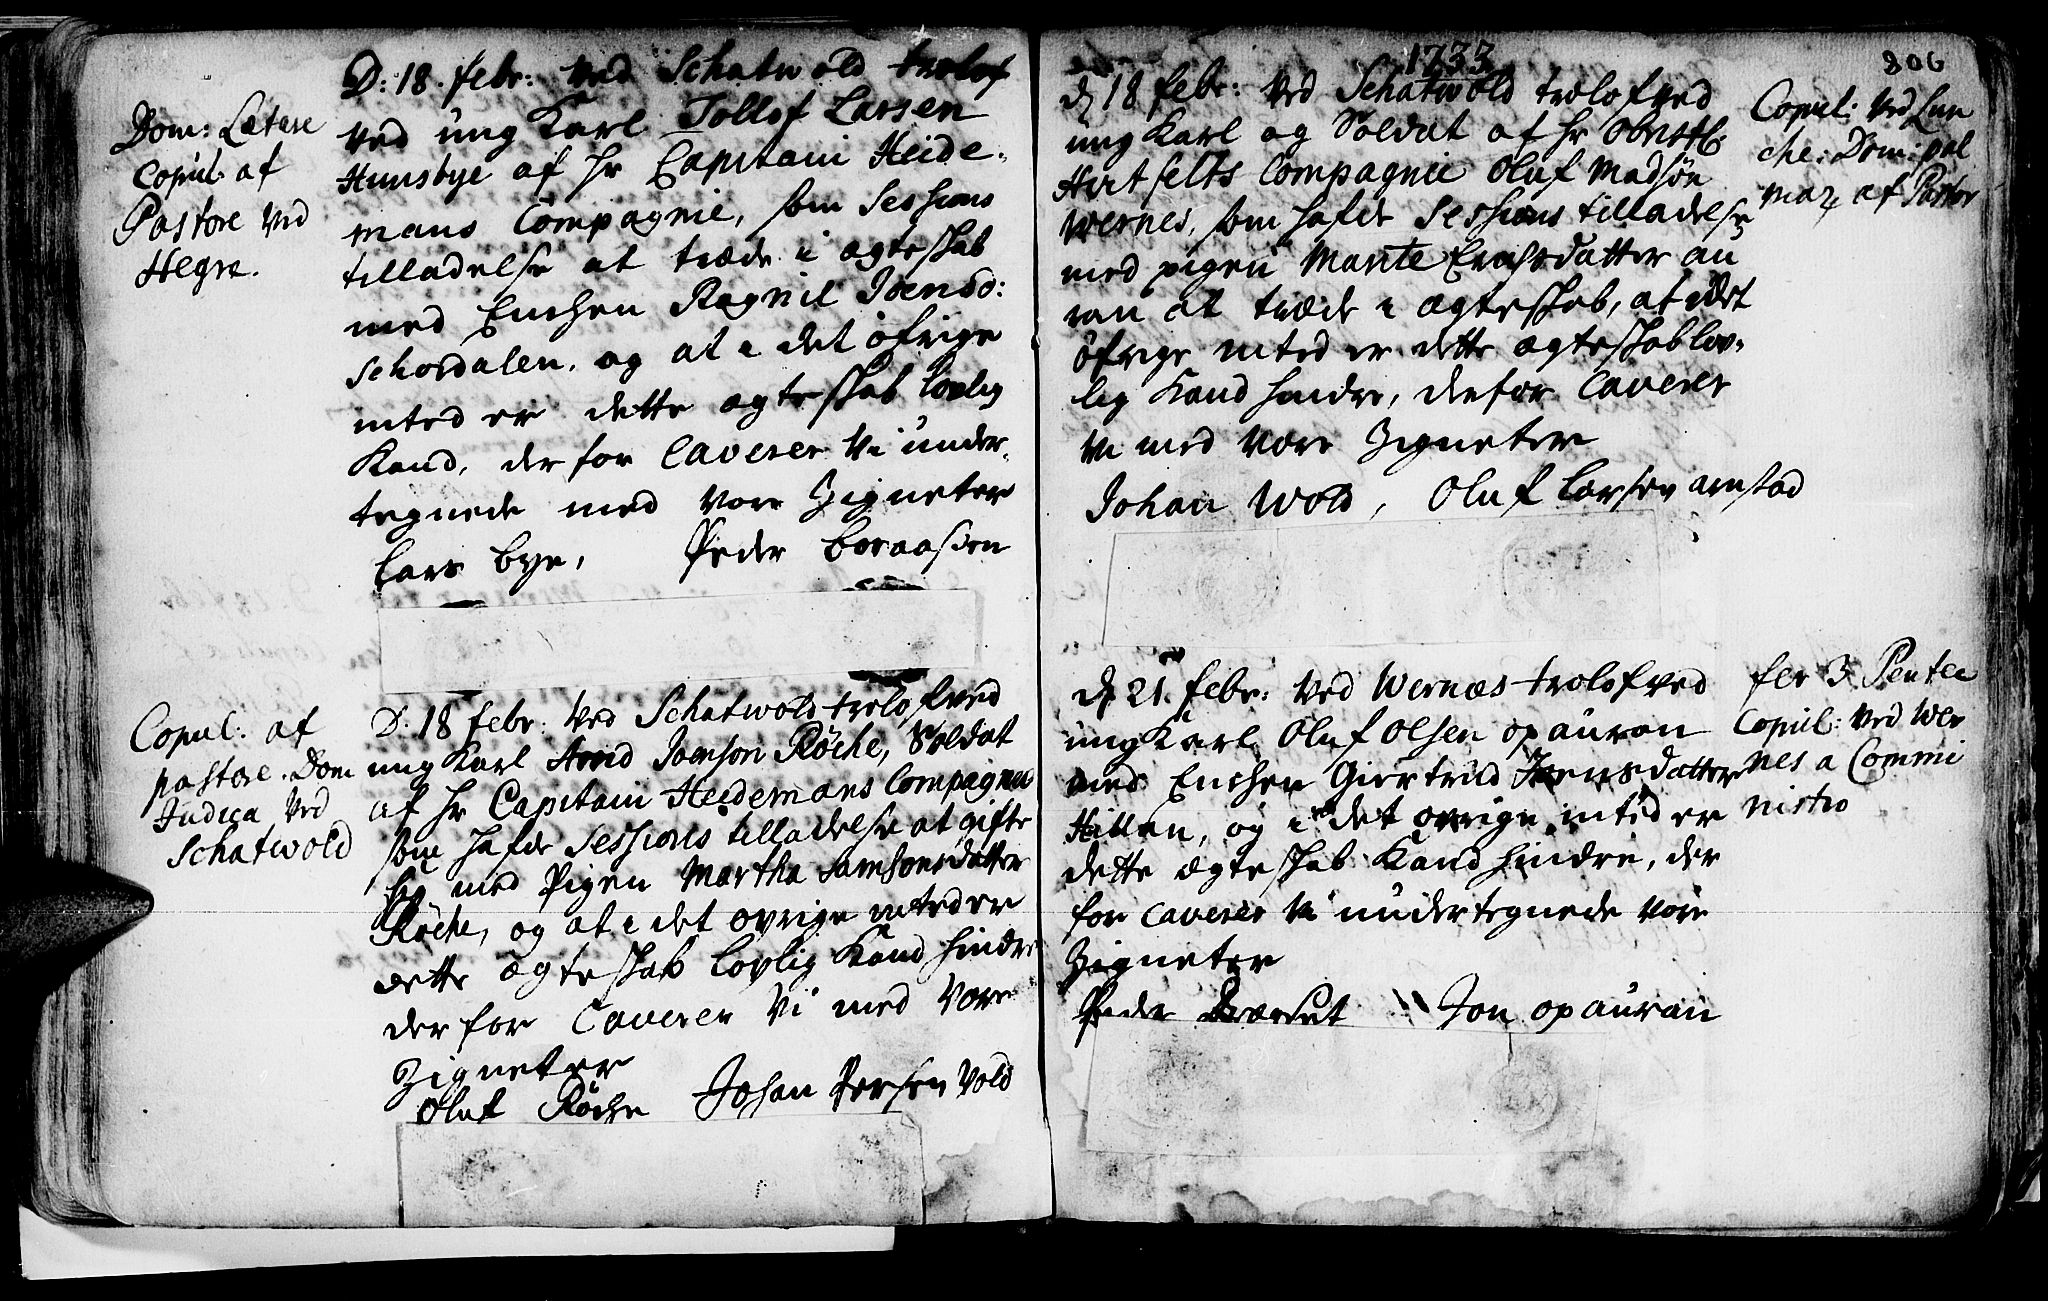 Dom: Lætare
Copul: af
Pastore ved
Hegre.
D: 18. febr: ved Schatwold trolof
ved ung Karl Tollof Larsen
Hunsbye af Hr Capitain Heide-
mans Compagnie, som Sessions
tilladelse at træde i ægteskab
med Enchen Ragnil Joensd:
Schordalen, og at i det öfrige
inted er dette ægteskab lovlig
Kand, derfor Caverer Vi under-
tegnede med vore Zigneter
Lars bye, Peder boraassen
Copul: af
pastore. Dom
Judica ved
Schatwold
D: 18 febr: ved Schatwold trolofved
ung Karl Joenson Röche, Soldat
af Hr Capitain Heidemans Compagnie
som hafde Sessions tilladelse at gifte
sig med Pigen Martha Samsonsdatter
Röche, og at i det ovrige inted er
dette ægteskab lovlig Kand hindre
derfor Caverer Vi med Vore
Zigneter
Oluf Röche Johan Persen Vold
1733
806
d 18 febr: ved Schatwold trolofved
ung Karl og Soldat af Hr Obristl:
Hirtfelts Compagnie Oluf Madsön
Wernes, som hafde Sessions tilladelse
med pigen Marite Erichsdatter au
ran at træde i ægteskab, at i det
öfrige inted er dette ægteskab lov-
lig Kand hindre, derfor Caverer
Vi med Vore Zigneter
Johan Wold, Oluf Larsen arnstad
Copul: ved Lun
che: Dom: pal
mar af Pastor
d 21. febr: ved Wernæs trolofved
ung Karl Oluf Olsen opauran
med Enchen Giertrud Joensdatter
Hillan, og i det ovrige inted er
dette ægteskab Kand hindre, der
for Caverer Vi undertegnede Vore
Zigneter
Peder Jon opauran
fer 3 Pentec
Copul: ved Wer
nes a Commi
nistro